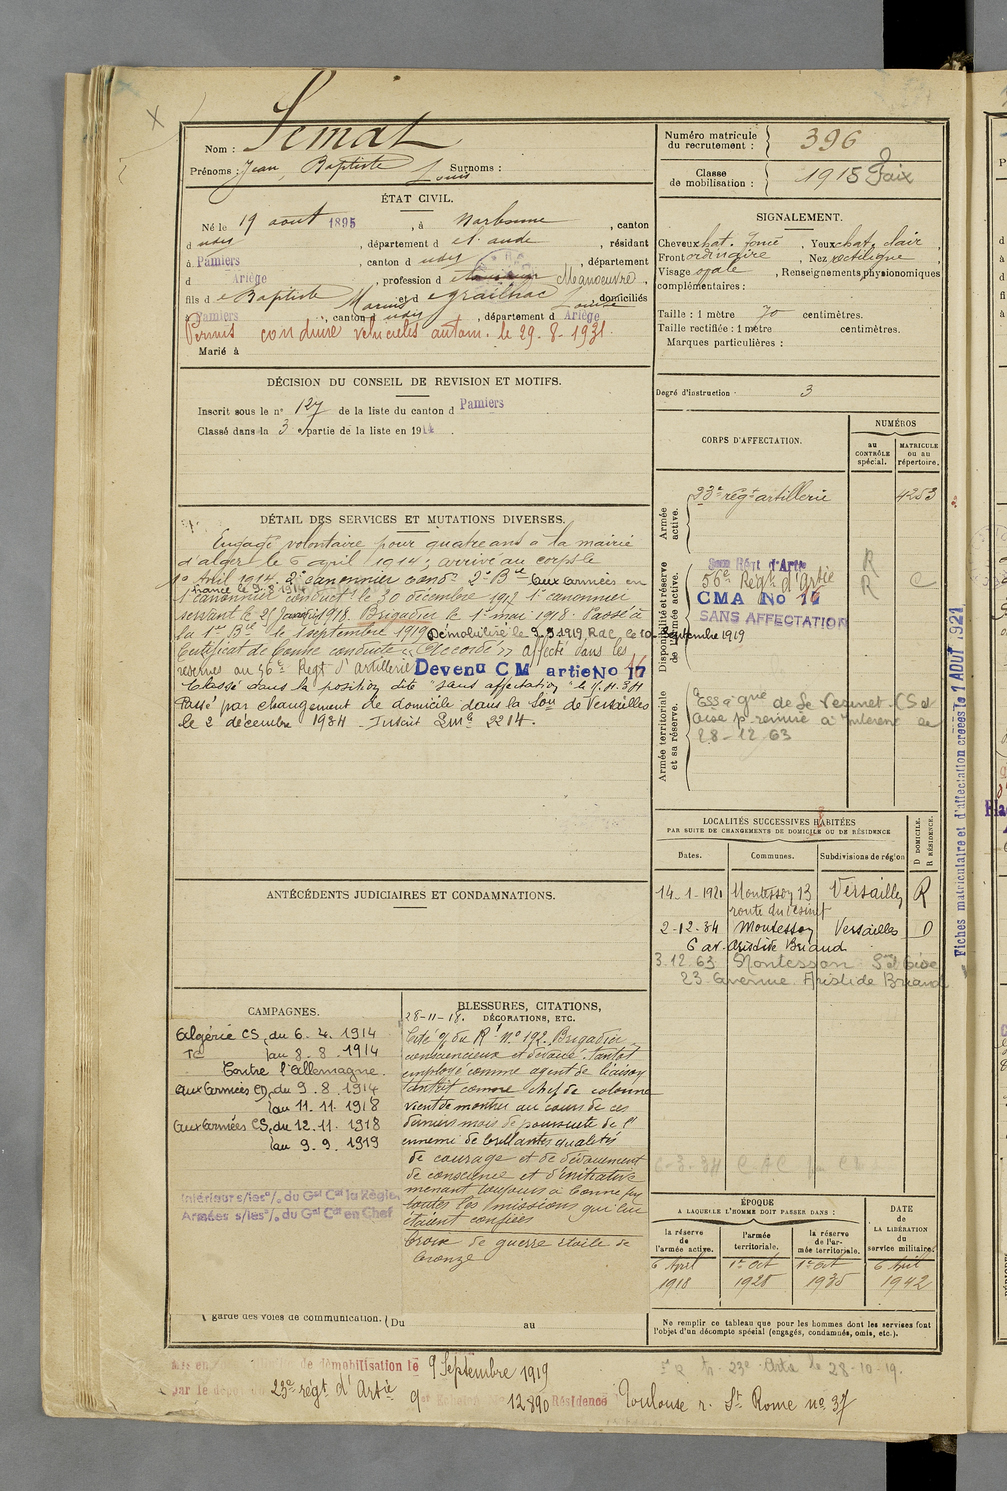 Nom : Sémat
Prénoms : Jean, Baptiste Louis Surnoms :
Numéro matricule du recrutement : 396
Classe de mobilisation : 1915 Foix
ÉTAT CIVIL.
Né le 19 août 1895, à Narbonne, canton
d udit, département d el aude, résidant
à Pamiers, canton d udit, département
d Ariège, profession d Manoeuvre,
fils d e Baptiste Marius et d e Grailhac Louise domiciliés
à Pamiers, canton d udit, département d Ariège
Permis conduire vehicules autom. le 29-8-1931
Marié à
SIGNALEMENT.
Cheveux chat. foncé, Yeux chat. clair,
Front ordinaire, Nez rectiligne,
Visage ovale, Renseignements physionomiques
complémentaires :
Taille : 1 mètre 70 centimètres.
Taille rectifiée : 1 mètre centimètres.
Marques particulières :
Degré d'instruction 3
DÉCISION DU CONSEIL DE REVISION ET MOTIFS.
Inscrit sous le n° 127 de la liste du canton d Pamiers
Classé dans la 3 e partie de la liste en 1914.
DÉTAIL DES SERVICES ET MUTATIONS DIVERSES.
Engagé volontaire pour quatre ans à la mairie
d'alger le 6 april 1914, arrivé au corps le
Avril 1914. 2e canonnier condr 2e Bie aux armées en
France le 9-8-1914
1e canonnier conduct le 30 décembre 1917 1e canonnier
servant le 25 1918. Brigadier le 1er mai 1918. Passé à
la 1re Bie le 1 septembre 1919 Démobilisé le 9.9.1919, R.a.c., le 10 septembre 1919
Certificat de bonne conduite "Accordé" affecté dans les
réserves au 56e Regt d'artillerie Devenu C M artie No 17 16
Classé dans la position dite "sans affectation" le 11.34
Passé par changement de domicile dans la Son de Versailles
le 2 décembre 1934 - Inscrit Lm 2214.
CORPS D'AFFECTATION.
NUMÉROS
au CONTRÔLE spécial.
MATRICULE ou au répertoire.
Armée active.
23e régt artillerie 4253
Disponibilité et réserve de l'armée active.
56e Regt d'Artie R
CMA No 16 R C
SANS AFFECTATION
Armée territoriale et sa réserve.
de Le Vesinet
28-12-63
Fiches matriculaire et d'affectation créées le 1 AOUT 1921
LOCALITÉS SUCCESSIVES HABITÉES
PAR SUITE DE CHANGEMENTS DE DOMICILE OU DE RÉSIDENCE
Dates. Communes. Subdivisions de région
D DOMICILE. R RÉSIDENCE.
14-1-1921 Montesson 13 route du Vesinet Versailles R
2-12-34 Montesson Versailles D
6 av. Aristide Briand
3.12.63 Montesson Snet Oise
23 Avenue Aristide Briand
ANTÉCÉDENTS JUDICIAIRES ET CONDAMNATIONS.
CAMPAGNES.
Algérie CS, du 6.4.1914
TC au 8.8.1914
Contre l'Allemagne.
aux armées CD, du 9.8.1914
au 11.11.1918
aux armées CS, du 12.11.1918
au 9.9.1919
Intérieur s/les o/. du Gal Cdt la Région
Armées s/les o/. du Gal Cdt en Chef
BLESSURES, CITATIONS,
DÉCORATIONS, ETC.
28-11-18.
Cité O/ du Rt No 192. Brigadier
consciencieux et dévoué. Tantôt
employé comme agent de liaison
tantôt comme chef de colonne
vient de montrer au cours de ces
derniers mois de poursuite de l'
ennemi de brillantes qualités
de courage et de dévouement
de conscience et d'initiative
menant toujours à bonne fin
toutes les missions qui lui
étaient confiées
Croix de guerre étoile de
bronze
6-3-34 C A C
ÉPOQUE
A LAQUELLE L'HOMME DOIT PASSER DANS :
la réserve de l'armée active.
l'armée territoriale.
la réserve de l'armée territoriale.
DATE de LA LIBÉRATION du service militaire.
6 Avril 1918
1er oct 1928
1er oct 1935
6 Avril 1942
garde des voies de communication. Du au
Ne remplir ce tableau que pour les hommes dont les services font
l'objet d'un décompte spécial (engagés, condamnés, omis, etc.).
de démobilisation le 9 Septembre 1919
par le dépôt 23e régt d'Artie 9e Echelon 12890 Résidence Toulouse r. St Rome no 37
23e Artie le 28-10-19.